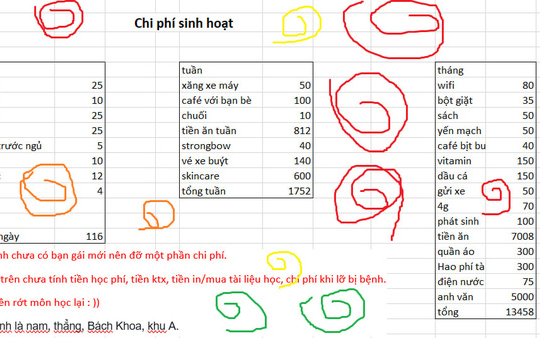 Chi phí sinh hoạt
25
10
25
25
trước ngủ 5
10
12
4
ngày 116
tuần
xăng xe máy 50
café với bạn bè 100
chuối 10
tiền ăn tuần 812
strongbow 40
vé xe buýt 140
skincare 600
tổng tuần 1752
tháng
wifi 80
bột giặt 35
sách 50
yến mạch 50
café bịt bu 40
vitamin 150
dầu cá 150
gửi xe 50
4g 70
phát sinh 100
tiền ăn 7008
quần áo 300
Hao phí tà 300
điện nước 75
anh văn 5000
tổng 13458
nh chưa có bạn gái mới nên đỡ một phần chi phí.
trên chưa tính tiền học phí, tiền ktx, tiền in/mua tài liệu học, chi phí khi lỡ bị bệnh.
ên rớt môn học lại : ))
nh là nam, thẳng, Bách Khoa, khu A.